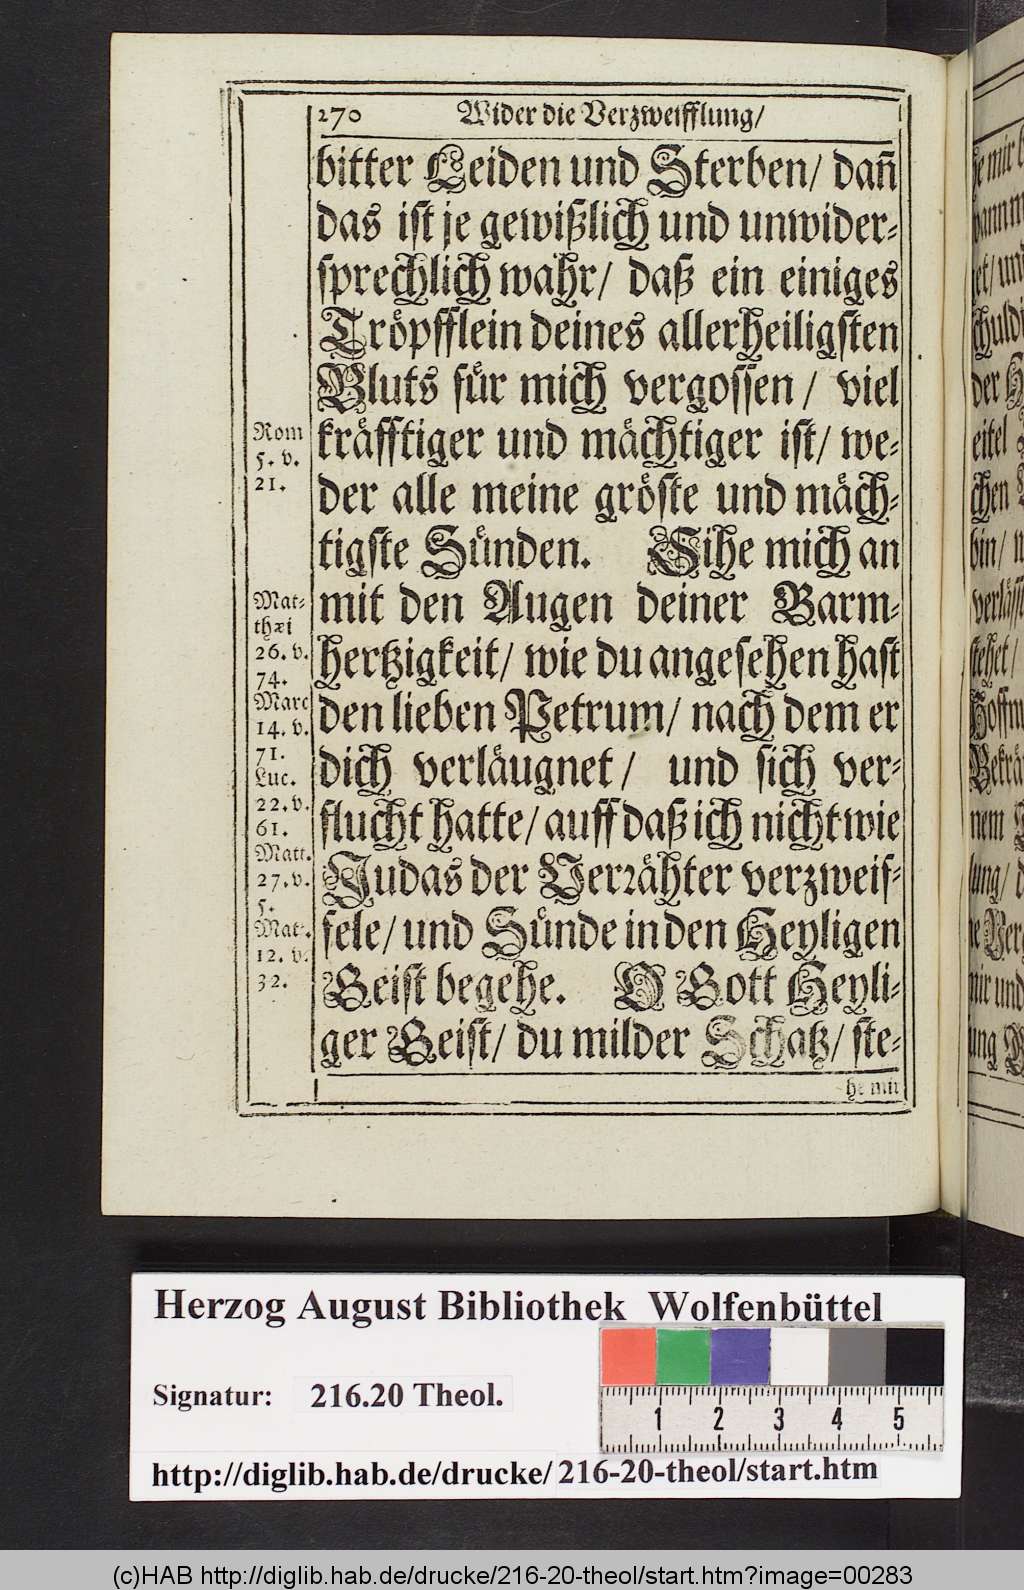 270 Wider die Verzweifflung/
bitter Leiden und Sterben/ dañ
das ist je gewißlich und unwider-
sprechlich wahr/ daß ein einiges
Tröpfflein deines allerheiligsten
Bluts für mich vergossen/ viel
kräfftiger und mächtiger ist/ we-
der alle meine gröste und mäch-
tigste Sünden. Sihe mich an
mit den Augen deiner Barm-
hertzigkeit/ wie du angesehen hast
den lieben Petrum/ nach dem er
dich verläugnet/ und sich ver-
flucht hatte/ auff daß ich nicht wie
Judas der Verrähter verzweif-
fele/ und Sünde in den Heyligen
Geist begehe. O Gott Heyli-
ger Geist/ du milder Schatz/ ste-
he mir
Rom
5. v.
21.
Mat-
thæi
26. v.
74.
Marc
14. v.
71.
Luc.
22. v.
61.
Matt.
27. v.
5.
Mat.
12. v.
32.
Herzog August Bibliothek Wolfenbüttel
Signatur: 216.20 Theol.
1 2 3 4 5
http://diglib.hab.de/drucke/216-20-theol/start.htm
(c)HAB http://diglib.hab.de/drucke/216-20-theol/start.htm?image=00283